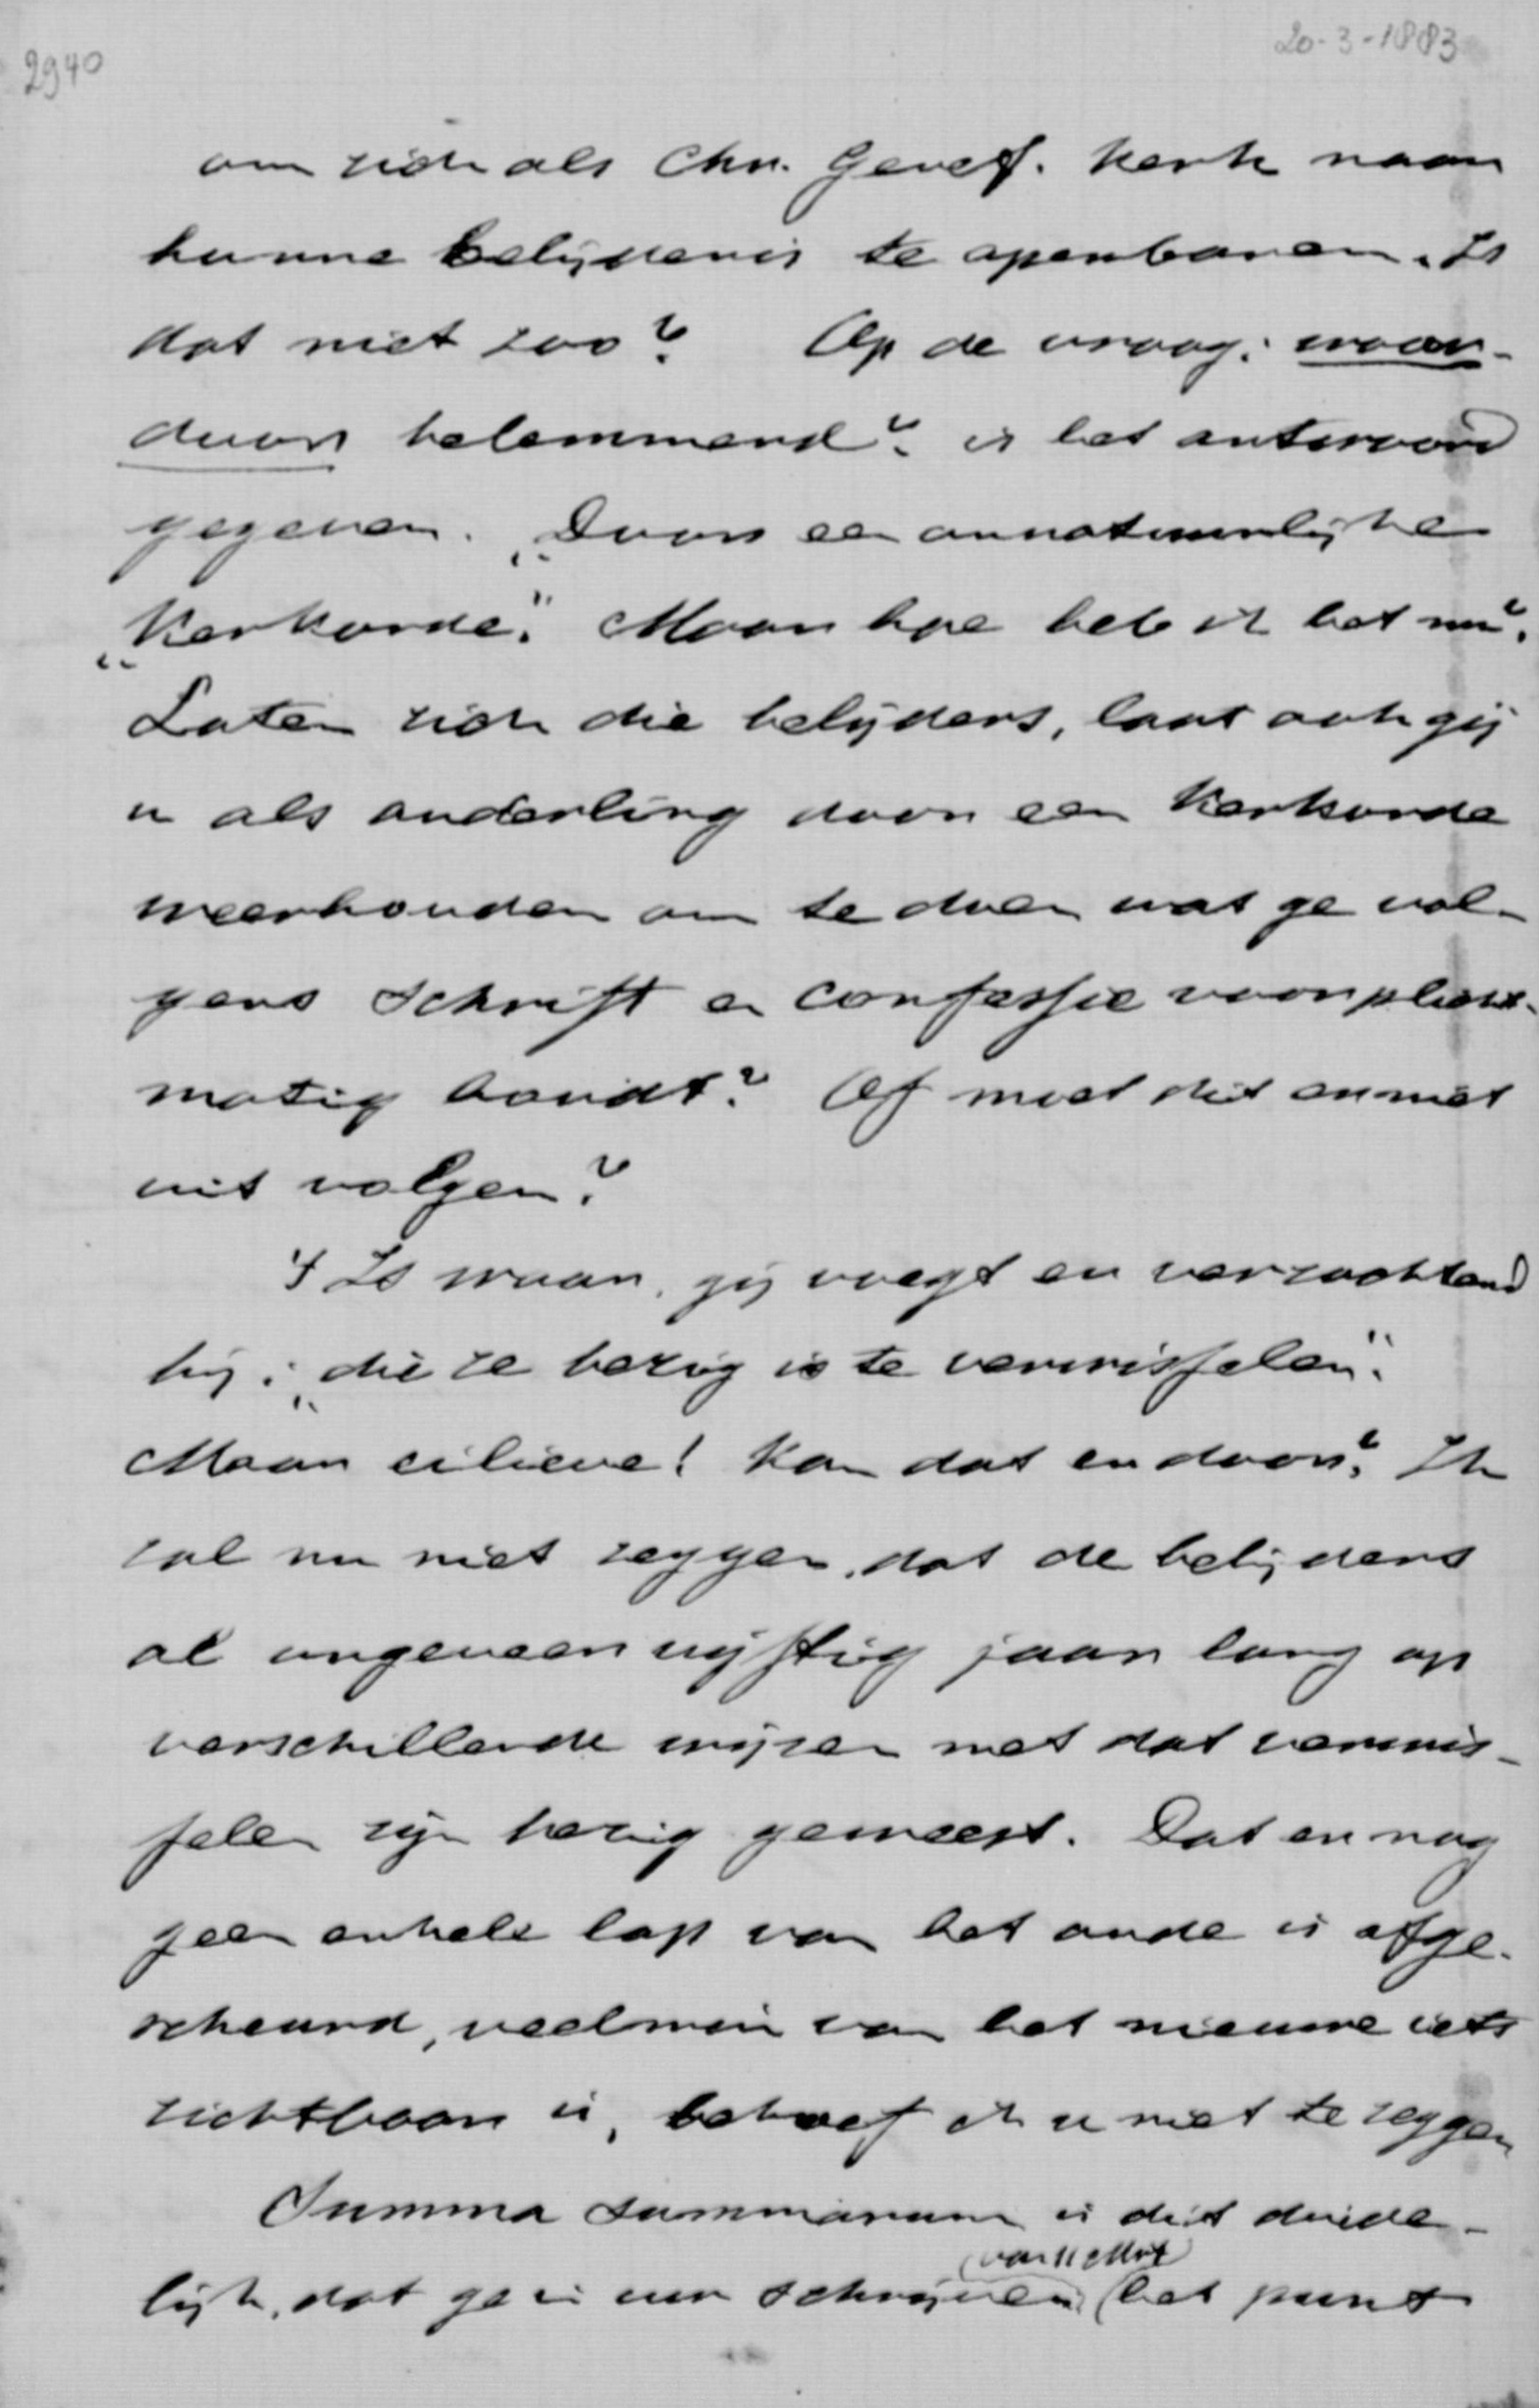 2940
20-3-1883
om zich als Chr. Geref. Kerk naar
hunne belijdenis te openbaren. Is
dat niet zoo? Op de vraag: waar-
door belemmerd? is het antwoord
gegeven. „Door een onnatuurlijke
„Kerkorde." Maar hoe heb ik het nu?
Laten zich die belijders, laat ook gij
u als ouderling door een Kerkorde
weerhouden om te doen wat ge vol-
gens Schrift en Confessie voor plicht-
matig houdt? Of moet dit er niet
uit volgen?
't Is waar, gij voegt er verzachtend
bij: „die ze bezig is te verwisselen".
Maar eilieve! Kan dat er door? Ik
zal nu niet zeggen, dat de belijders
al ongeveer vijftig jaar lang op
verschillende wijzen met dat verwis-
selen zijn bezig geweest. Dat er nog
geen enkele lap van het oude is afge-
scheurd, veelmin van het nieuwe iets
zichtbaar is, behoef ik u niet te zeggen
Summa Summarum is dit duide-
lijk, dat ge in uw schrijven (van 11 Mrt) het punt